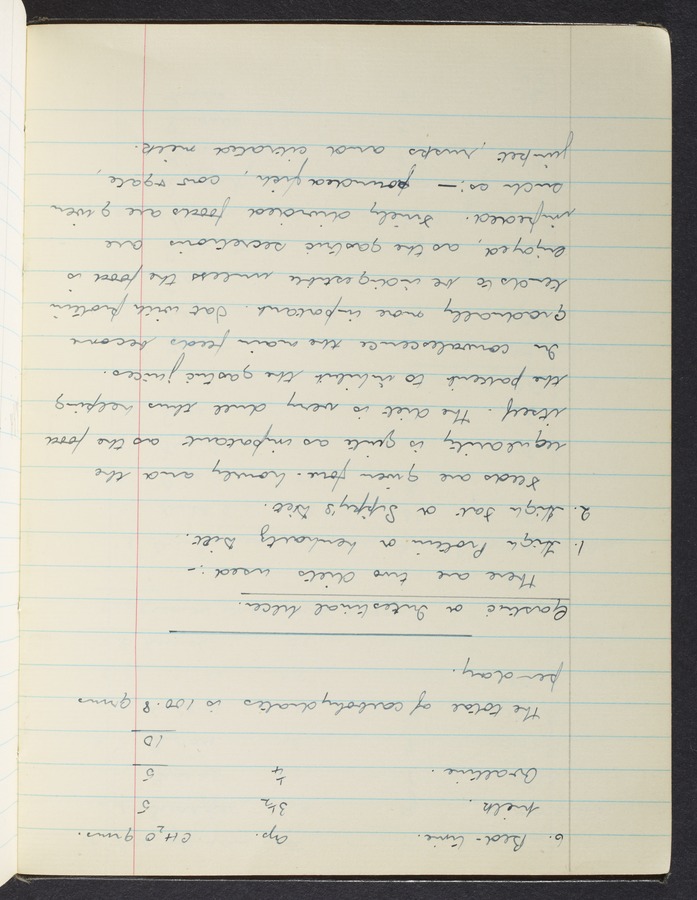 6. Bed-time. ap. CH2O grms.
Milk. 3½ 5
Ovaltine. ¼ 5
10
The total of carbohydrates is 100.8 grms
per day.
Gastric or Intestinal Ulcer.
There are two diets used :-
1. High Protein or Lenhartz Diet.
2. High Fat or Sippy's Diet.
Feeds are given four-hourly and the
regularity is quite as important as the food
itself. The diet is very dull thus helping
the patient to inhibit the gastric juices.
In convalescence the main feeds become
gradually more important. Fat with protein
tends to be indigestible unless the food is
enjoyed, as the gastric secretions are
impeded. Finely divided foods are given
such as :- pounded fish,
junket, rusks and citrated milk.